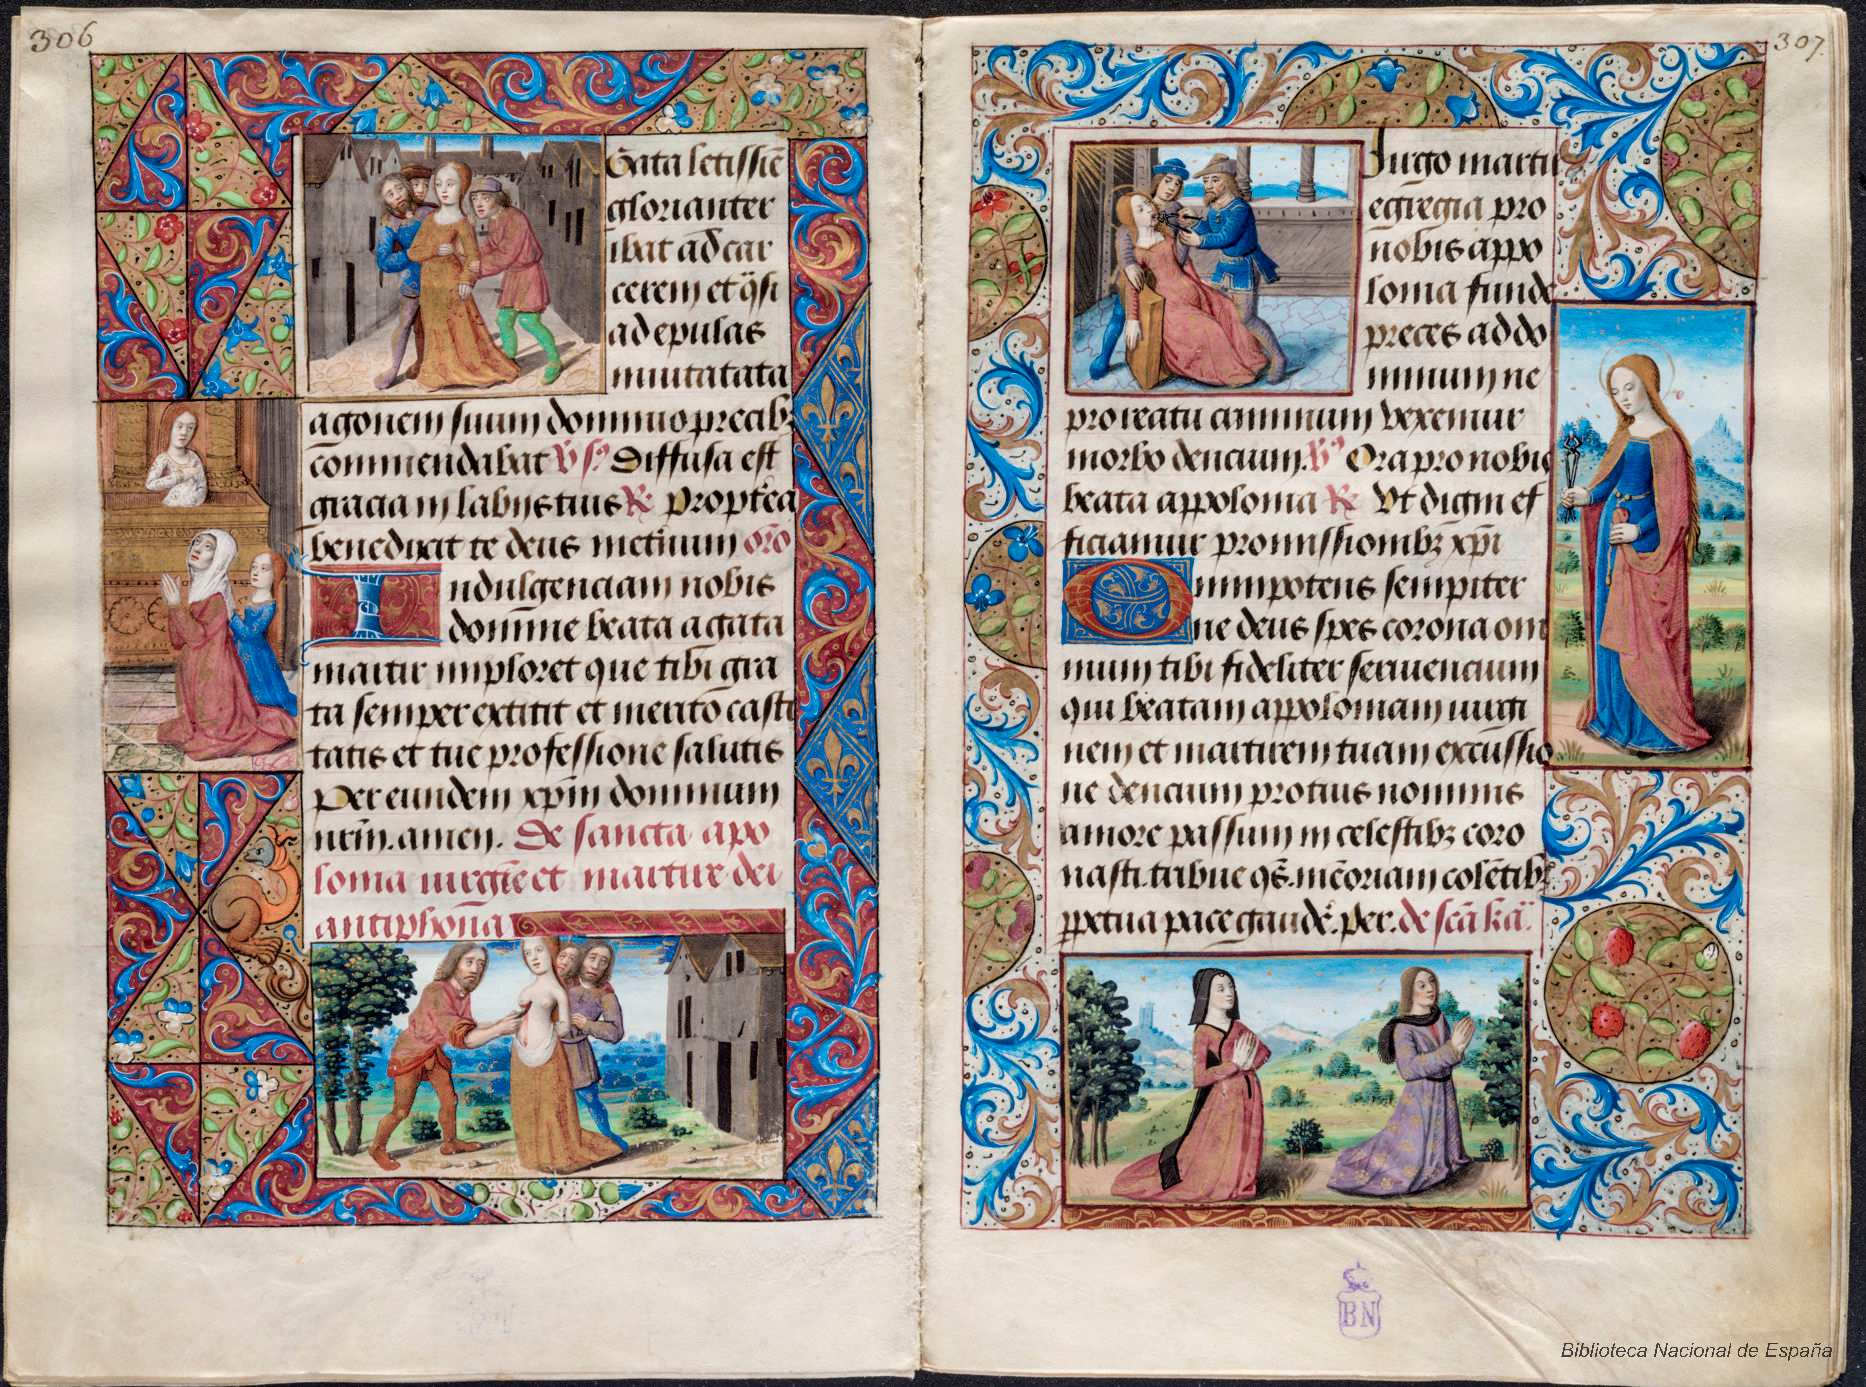 306
Gata letissiē
glorianter
ibat ad car
cerem et q̄si
ad epulas
inuitatata
agonem suum domino precibꝫ
cōmendabat v̄s Diffusa est
gracia in labijs tuis ℞ Propt̄ea
benedixit te deus in et̄num oro
Indulgenciam nobis
domīne beata agata
martir imploret que tibi gra
ta semper extitit et merito casti
tatis et tue professione salutis
Per eundem xp̄m dominum
nr̄m. amen. De sancta apo
lonia uirgīe et martire dei
antiphona
307
Uirgo martir
egregia pro
nobis appo
lonia funde
preces ad do
minum ne
pro reatu criminum vexemur
morbo dencium. v̄ Ora pro nobis
beata appolonia ℞ Vt digni ef
ficiamur promissionibꝫ xp̄i
Omnipotens sempiter
ne deus spes corona om
nium tibi fideliter seruiencium
qui beatam appoloniam uirgi
nem et martirem tuam excussio
ne dencium pro tuis nominis
amore passum in celestibꝫ coro
nasti. tribue q̄s. mēoriam colētibꝫ
ꝑpetua pace gaudē. per. de scā ka
BN
Biblioteca Nacional de España